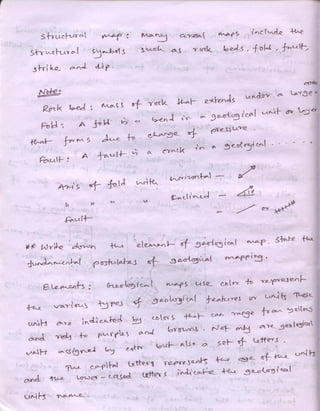 Structural map: Many areal maps include the
structural symbols such as rock beds, fold, fault,
strike and dip.
Note:
Rock bed: Mass of rock that extends under a large
Fold: A fold is a bend in a geological unit or layer
that forms due to change of pressure
Fault: A fault is a crack in a geological .....
Axis of fold with horizontal —
" " " Inclined —
Fault — or
** Write down the element of geological map. State the
fundamental postulates of geological mapping.
Elements: Geological maps use color to represent
the various types of geological features or units. These
units are indicated by colors that can range from yellow
and red to purples and browns. Not only are geological
units assigned by color but also a set of letters.
The capital letters represents the age of the units
and the lower-cased letters indicate the geological
units name.